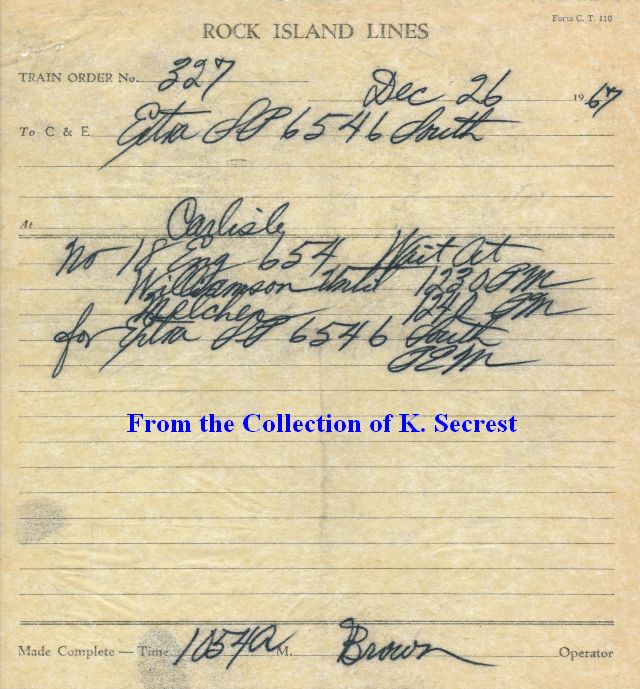 Form C. T. 110
ROCK ISLAND LINES
TRAIN ORDER No. 327 Dec 26 1967
To C & E Extra SP 6546 South
At Carlisle
No 18 Eng 654 Wait At
Williamson Until 1230 PM
Melcher 1240 PM
for Extra SP 6546 South
From the Collection of K. Secrest
Made Complete — Time 1054A M. Brown Operator